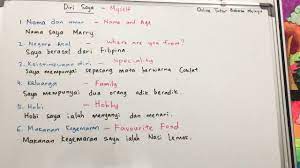 Diri Saya - Myself
Online Tutor Bahasa Melayu
1. Nama dan umur - Name and Age
Nama saya Marry.
2. Negara Asal - Where are you from?
Saya berasal dari Filipina
3. Keistimewaan diri - Speciality
Saya mempunyai sepasang mata berwarna Coklat.
4. Keluarga - Family
Saya mempunyai dua orang adik beradik.
5. Hobi - Hobby
Hobi saya ialah menyanyi dan menari.
6. Makanan Kegemaran - Favourite Food
Makanan kegemaran saya ialah Nasi Lemak.